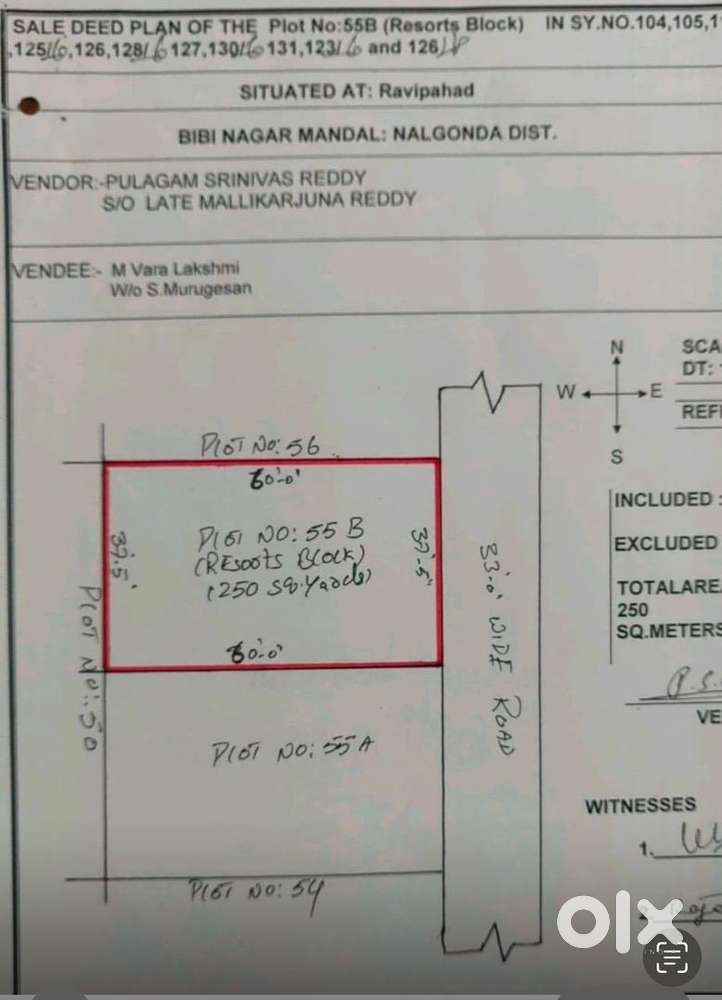 SALE DEED PLAN OF THE Plot No:55B (Resorts Block) IN SY.NO.104,105,1
,125/
,126,128/
127,130/
131,123/
and 126/
SITUATED AT: Ravipahad
BIBI NAGAR MANDAL: NALGONDA DIST.
VENDOR:-PULAGAM SRINIVAS REDDY
S/O LATE MALLIKARJUNA REDDY
VENDEE:- M Vara Lakshmi
W/o S.Murugesan
N
W E
S
SCA
DT:
REF
PLOT NO:56
60'-0'
PLOT NO: 55 B
(RESOOTS BLOCK)
(250 SQ.Yards)
37.5'
37'-5"
60'-0'
PLOT NO:50
33'.0' WIDE ROAD
PLOT NO: 55 A
PLOT NO: 54
INCLUDED :
EXCLUDED
TOTALAREA
250
SQ.METERS
VE
WITNESSES
1.
olx